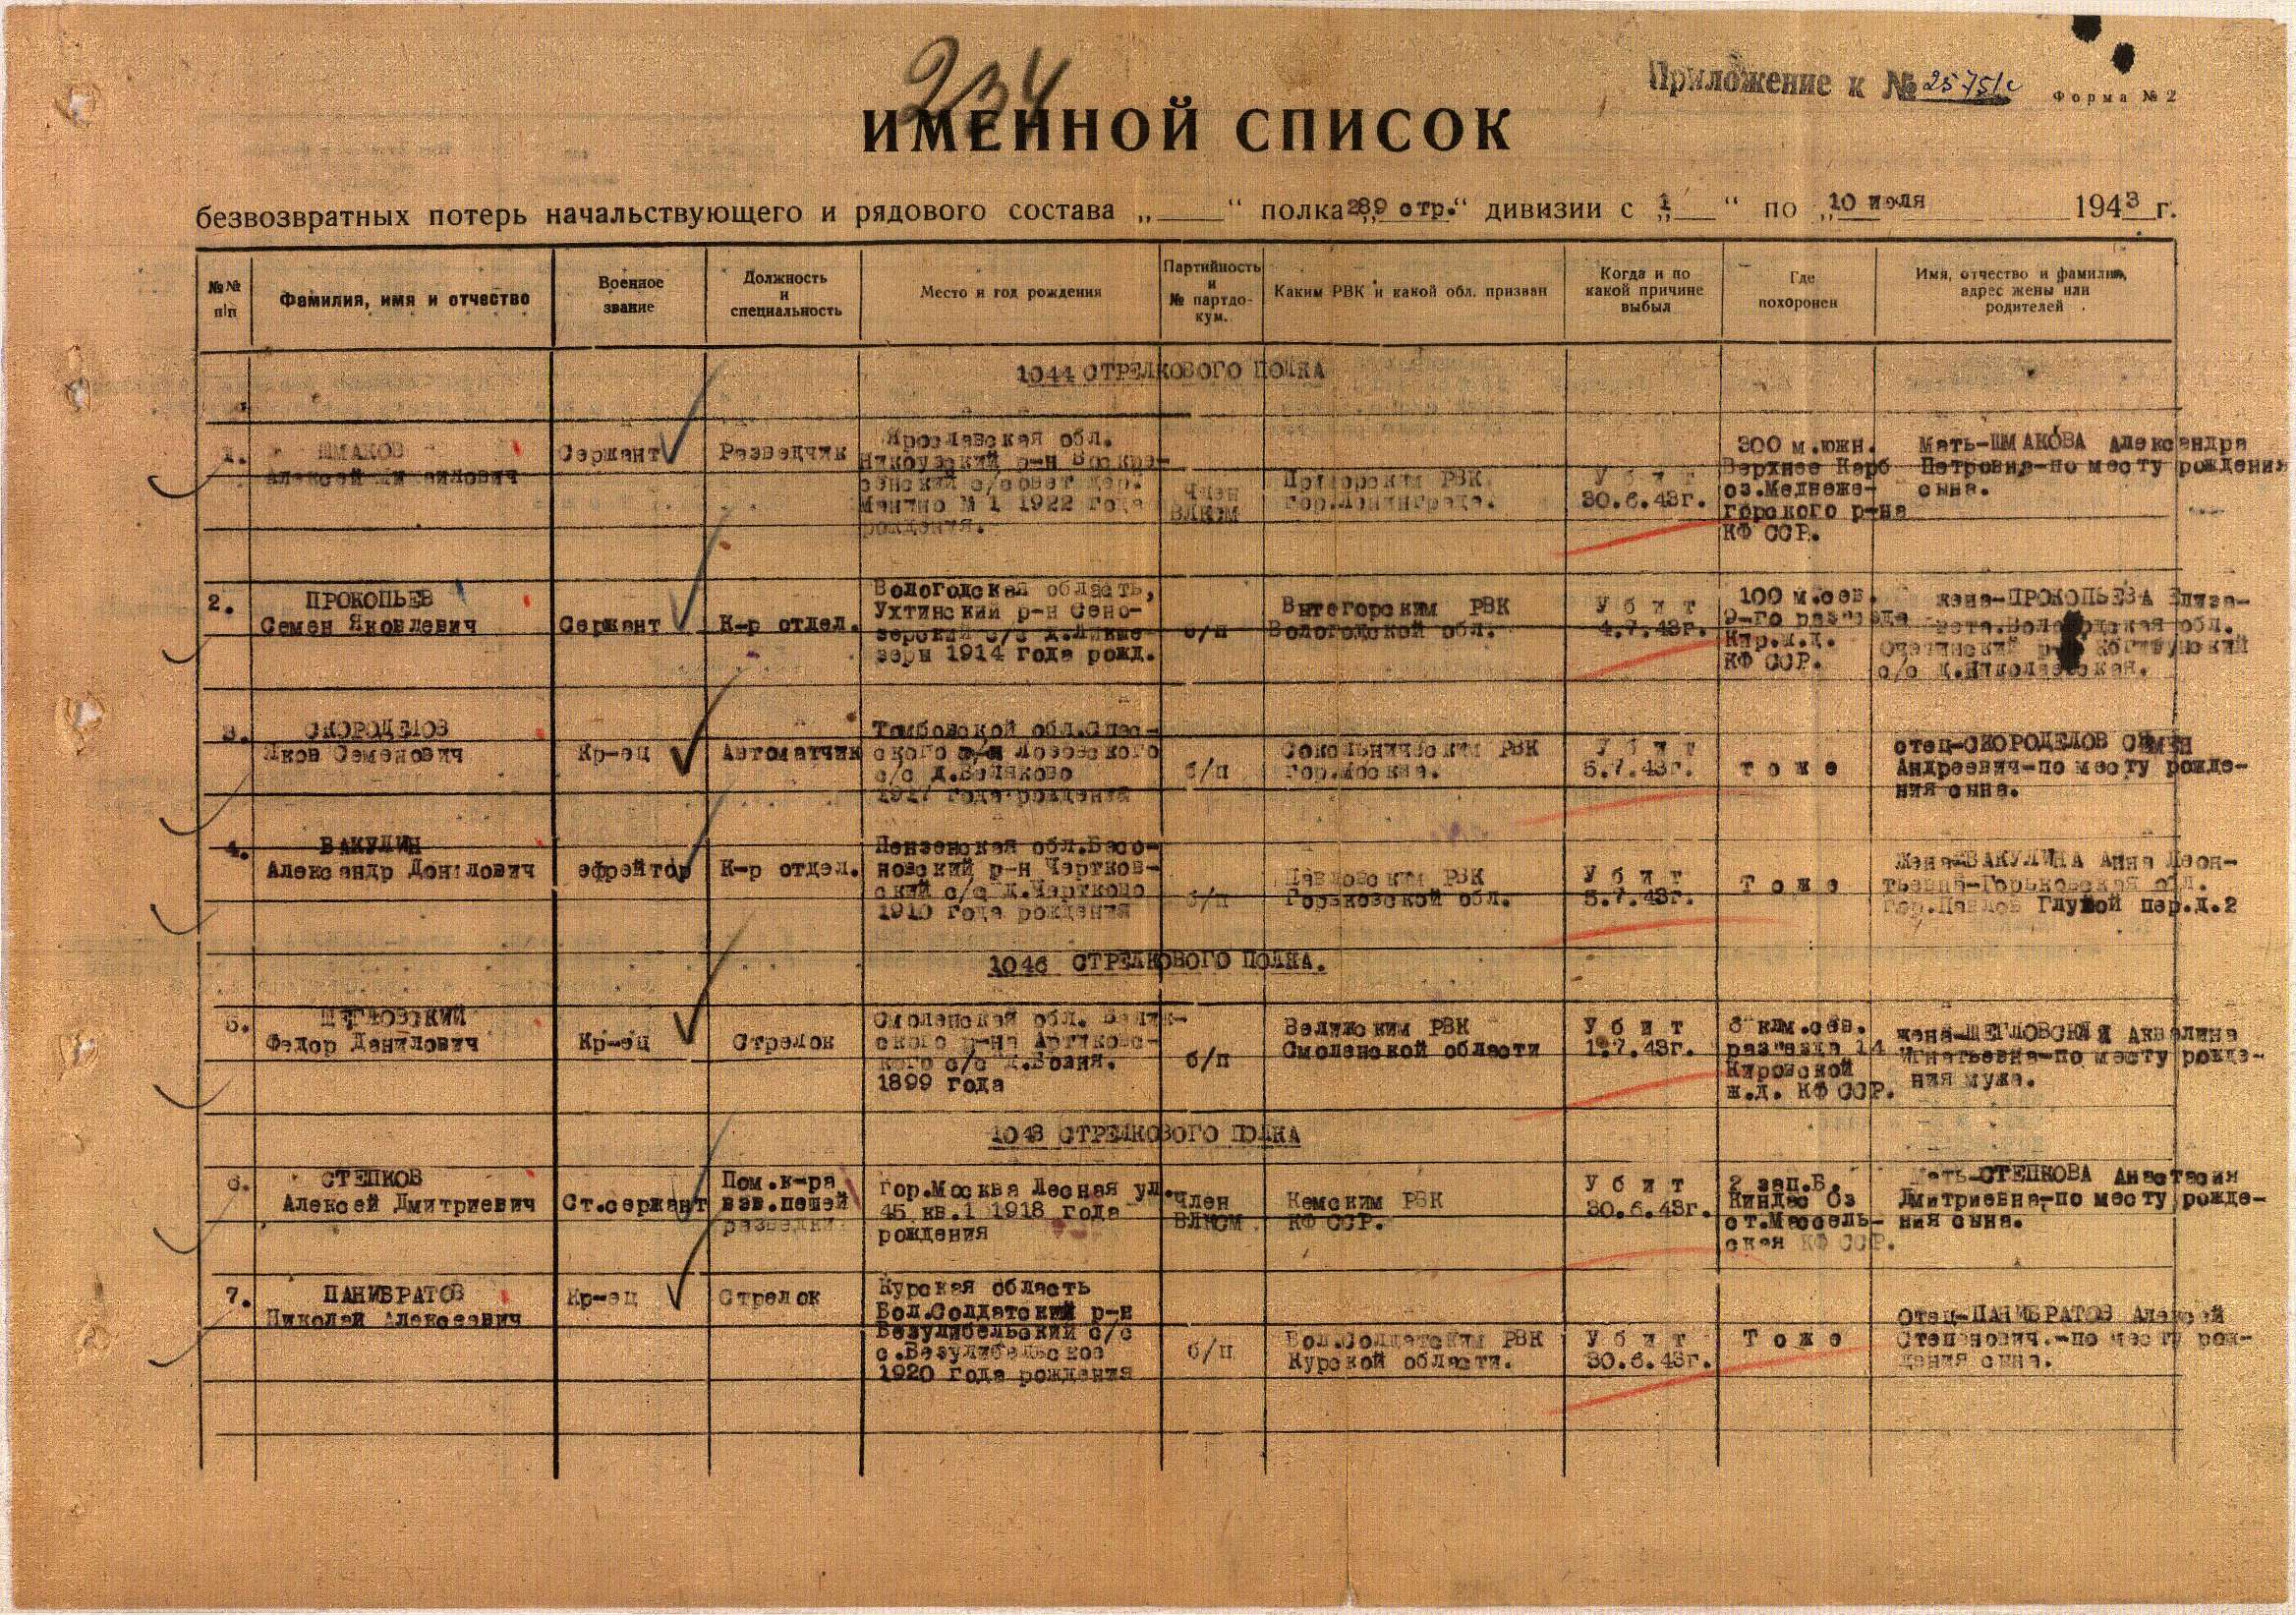 234
Приложение к № 2575/с
Форма № 2
ИМЕННОЙ СПИСОК
безвозвратных потерь начальствующего и рядового состава „___“ полка „289 стр.“ дивизии с „1__“ по „10 июля 1943 г.
№№ п/п
Фамилия, имя и отчество
Военное звание
Должность и специальность
Место и год рождения
Партийность и № партдо-кум.
Каким РВК и какой обл. призван
Когда и по какой причине выбыл
Где похоронен
Имя, отчество и фамилия, адрес жены или родителей
1044 СТРЕЛКОВОГО ПОЛКА
1.
ШМАКОВ
Алексей
Сержант
Разведчик
Ярославская обл.
р-н
с/совет дер.
№ 1 1922 года
рождения.
Член
ВЛКСМ
Приморским РВК
гор.Ленинграда.
Убит
30.6.43г.
300 м.южн.
Верхнее Карб
оз.Медвеже-
горского р-на
КФ ССР.
Мать-ШМАКОВА Александра
Петровна-по месту рождения
сына.
2.
ПРОКОПЬЕВ
Семен Яковлевич
Сержант
К-р отдел.
Вологодская область,
Ухтинский р-н Сено-
зерский с/с
зеры 1914 года рожд.
б/п
Вытегорским РВК
Вологодской обл.
Убит
4.7.43г.
100 м.сев.
9-го раз"езда
Кир.ж.д.
КФ ССР.
жена-ПРОКОПЬЕВА Елиза-
вета.Вологодская обл.
р-н
с/с
3.
СКОРОДЕЛОВ
Яков Семенович
Кр-ец
Автоматчик
Тамбовской обл.Спас-
ского р-н
с/с д.
1917 года рождения
б/п
Сокольническим РВК
гор.Москва.
Убит
5.7.43г.
тоже
отец-СКОРОДЕЛОВ СЕМЕН
Андреевич-по месту рожде-
ния сына.
4.
ВАКУЛИН
Александр Данилович
эфрейтор
К-р отдел.
Пензенская обл.Бесо-
новский р-н Чертков-
ский с/с д.Чертково
1910 года рождения
б/п
Павловским РВК
Горьковской обл.
Убит
5.7.43г.
Тоже
Жена-ВАКУЛИНА Анна Леон-
тьевна-Горьковская обл.
гор.Павлов Глухой пер.д.2
1046 СТРЕЛКОВОГО ПОЛКА.
5.
ЩЕГЛОВСКИЙ
Федор Данилович
Кр-ец
Стрелок
Смоленская обл. Велиж-
ского р-на
кого с/с д.
1899 года
б/п
Велижским РВК
Смоленской области
Убит
.7.43г.
клм.сев.
раз"езда 14
Кировской
ж.д. КФ ССР.
жена-ЩЕГЛОВСКАЯ Аквелина
Игнатьевна-по месту рожде-
ния мужа.
1048 СТРЕЛКОВОГО ПОЛКА
6.
СТЕПКОВ
Алексей Дмитриевич
Ст.сержант
Пом.к-ра
взв.пешей
разведки
гор.Москва Лесная ул.
45 кв.1 1918 года
рождения
Член
ВЛКСМ
Кемским РВК
КФ ССР.
Убит
30.6.43г.
2 зап.Б.
Киндас Оз
ст.Массель-
ская КФ ССР.
Мать-СТЕПКОВА Анастасия
Дмитриевна,-по месту рожде-
ния сына.
7.
ПАНИБРАТОВ
Николай Алексеевич
Кр-ец
Стрелок
Курская область
Бол.Солдатский р-н
с/с
1920 года рождения
б/п
Бол.Солдатским РВК
Курской области.
Убит
30.6.43г.
Тоже
Отец-ПАНИБРАТОВ Алексей
Степанович.-по месту рож-
дения сына.